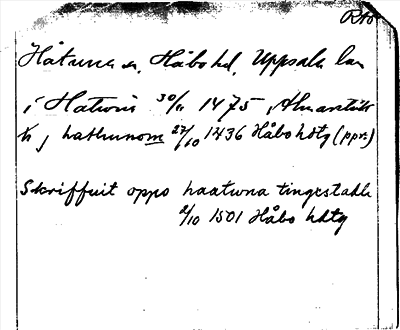 RAÖ
Håtuna sn, Håbo hd, Uppsala län
i Hatwni 30/11 1475, Almarestäk
k j hathunom 27/10 1436 Håbo hdtg (ppr.)
Skriffuit oppo haatwna tingestadh
2/10 1501 Håbo hdtg